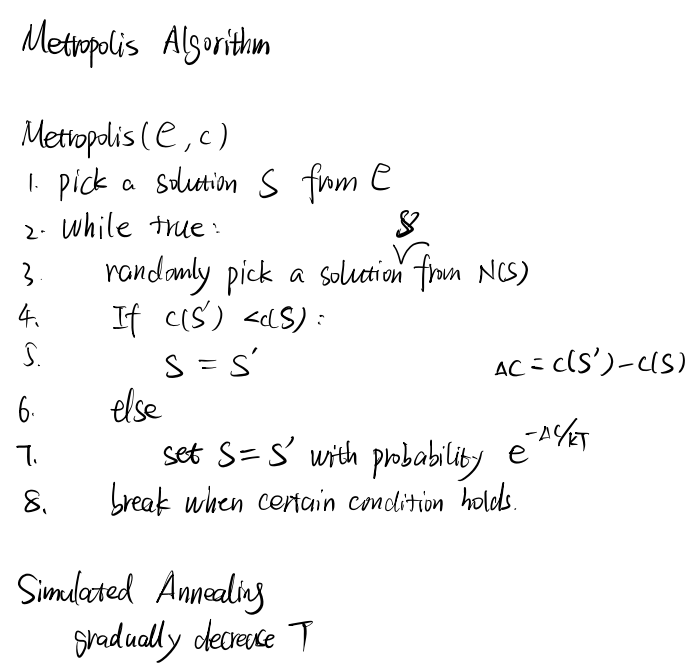 Metropolis Algorithm
Metropolis(C, c)
1. pick a solution S from C
2. while true:
3. randomly pick a solution S' from N(S)
4. If c(S') < c(S):
5. S = S'
ΔC = c(S') - c(S)
6. else
7. set S = S' with probability e^{-ΔC/kT}
8. break when certain condition holds.
Simulated Annealing
gradually decrease T